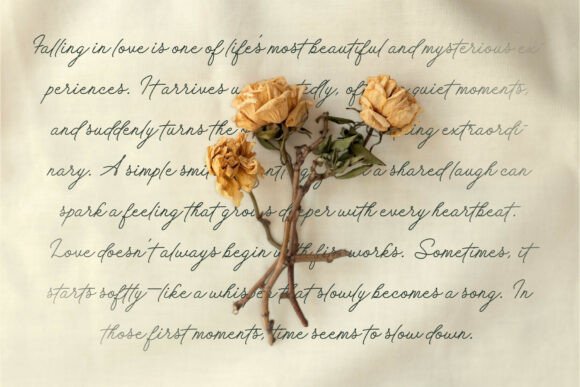 Falling in love is one of life's most beautiful and mysterious ex
periences. It arrives quiet moments,
and suddenly turns the extraordi
nary. A simple a shared laugh can
spark a feeling that grows deeper with every heartbeat.
Love doesn't always begin with fireworks. Sometimes, it
starts softly—like a whisper that slowly becomes a song. In
those first moments, time seems to slow down.